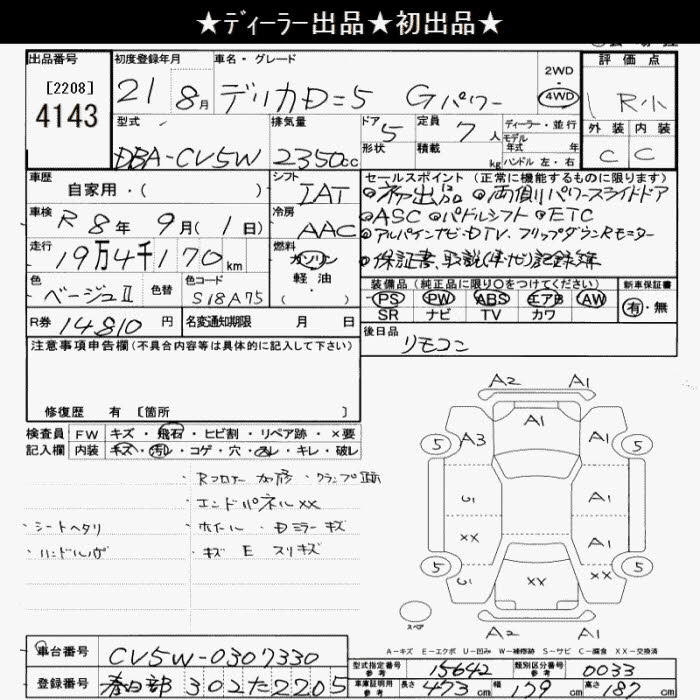 ★ディーラー出品★初出品★
出品番号
[2208]
4143
初度登録年月
21 8月
車名・グレード
デリカD=5 Gパワー
2WD
4WD
評価点
R小
外装 内装
C C
型式
DBA-CV5W
排気量
2350cc
ドア 5
形状
定員 7人
積載 kg
ディーラー・並行
モデル
年式 年
ハンドル 左・右
車歴
自家用・( )
シフト
IAT
車検 R8年 9月(1日)
冷房
AAC
走行 19万4千170km
燃料
ガソリン
軽油
( )
色 ベージュⅡ
色替
色コード
S18A75
R券 14810円
名変通知期限 月 日
セールスポイント(正常に機能するものに限ります)
◎初出品 ◎両側パワースライドドア
◎ASC ◎パドルシフト ◎ETC
◎アルパインナビ・DTV、フリップダウンRモーター
◎保証書、取説(車・ナビ)記録簿
装備品(純正品に限り○をつけてください)
PS PW ABS エアB AW
SR ナビ TV カワ
新車保証書
有・無
後日品
リモコン
注意事項申告欄(不具合内容等は具体的に記入して下さい)
修復歴 有 [箇所 ]
検査員
記入欄
FW キズ・飛石・ヒビ割・リペア跡・×要
内装 キズ・汚レ・コゲ・穴・スレ・キレ・破レ
・Rフロアー加修・クランプ跡
・エンドパネルXX
・シートヘタリ ・ホイール・Dミラーキズ
・キズ E スリキズ
A2 A1
A1
5 A3 A1 5
U1 A1
XX A1
5 U1 XX XX 5
A2 A1
スペア
A-キズ E-エクボ U-凹み W-補修跡 S-サビ C-腐食 XX-交換済
車台番号 CV5W-0307330
登録番号 春日部 302 た 2205
型式指定番号
参考
15642
類別区分番号
参考
0033
車車証明用
参考
長さ 473cm 幅 179cm 高さ 187cm